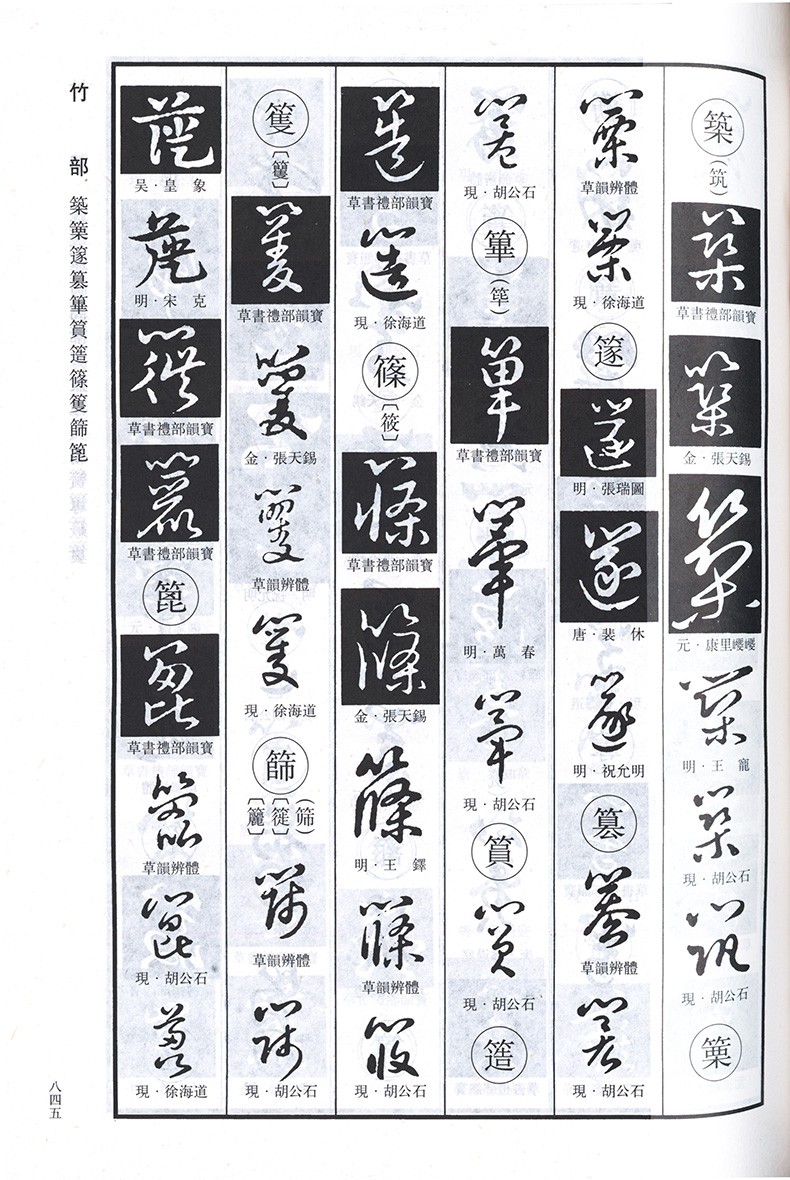 築
(筑)
草書禮部韻寶
金·張天錫
元·康里巎巎
明·王寵
現·胡公石
現·胡公石
篥
草韻辨體
現·徐海道
篴
明·張瑞圖
唐·裴休
明·祝允明
篡
草韻辨體
現·胡公石
現·胡公石
篳
(筚)
草書禮部韻寶
明·萬春
現·胡公石
篔
現·胡公石
簉
草書禮部韻寶
現·徐海道
篠
〔筱〕
草書禮部韻寶
金·張天錫
明·王鐸
草韻辨體
現·胡公石
篗
〔籆〕
草書禮部韻寶
金·張天錫
草韻辨體
現·徐海道
篩
(筛)
〔簁〕
〔簏〕
草韻辨體
現·胡公石
吴·皇象
明·宋克
草書禮部韻寶
草書禮部韻寶
篦
草書禮部韻寶
草韻辨體
現·胡公石
現·徐海道
竹部 築篥篴篡篳篔簉篠篗篩篦
八四五